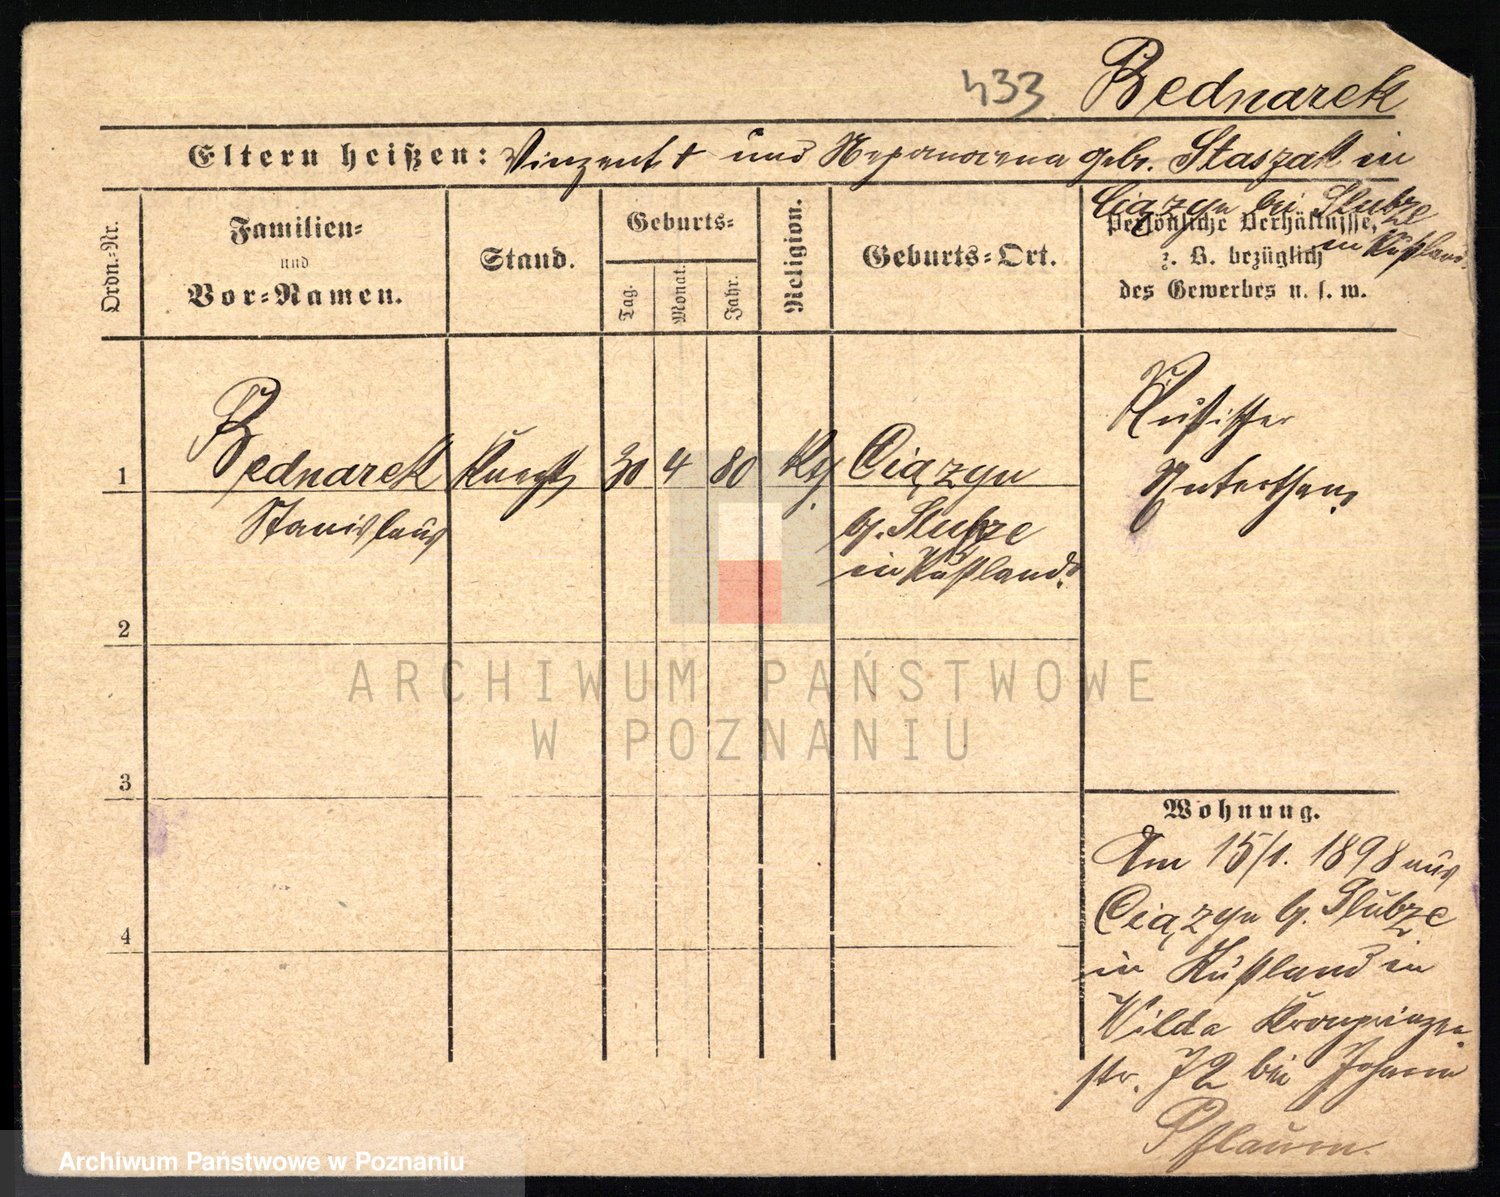 433 Bednarek
Eltern heißen: Vinzent † und Nepomocena geb. Staszak in
Ciązyn bei Slubze
in Rußland.
Ordn.-Nr.
Familien-
und
Vor-Namen.
Stand.
Geburts-
Tag.
Monat.
Jahr.
Religion.
Geburts-Ort.
Persönliche Verhältnisse,
z. B. bezüglich
des Gewerbes u. s. w.
1 Bednarek Knecht 30 4 80 kth. Ciązyn
Stanislaus
b. Slubze
in Rußland.
Russischer
Unterthan.
2
3
4
Wohnung.
Am 15/1. 1898 aus
Ciązyn b. Slubze
in Rußland in
Wilda Kronprinzen-
str. 72 bei Johann
Pflaum.
ARCHIWUM PAŃSTWOWE
W POZNANIU
Archiwum Państwowe w Poznaniu